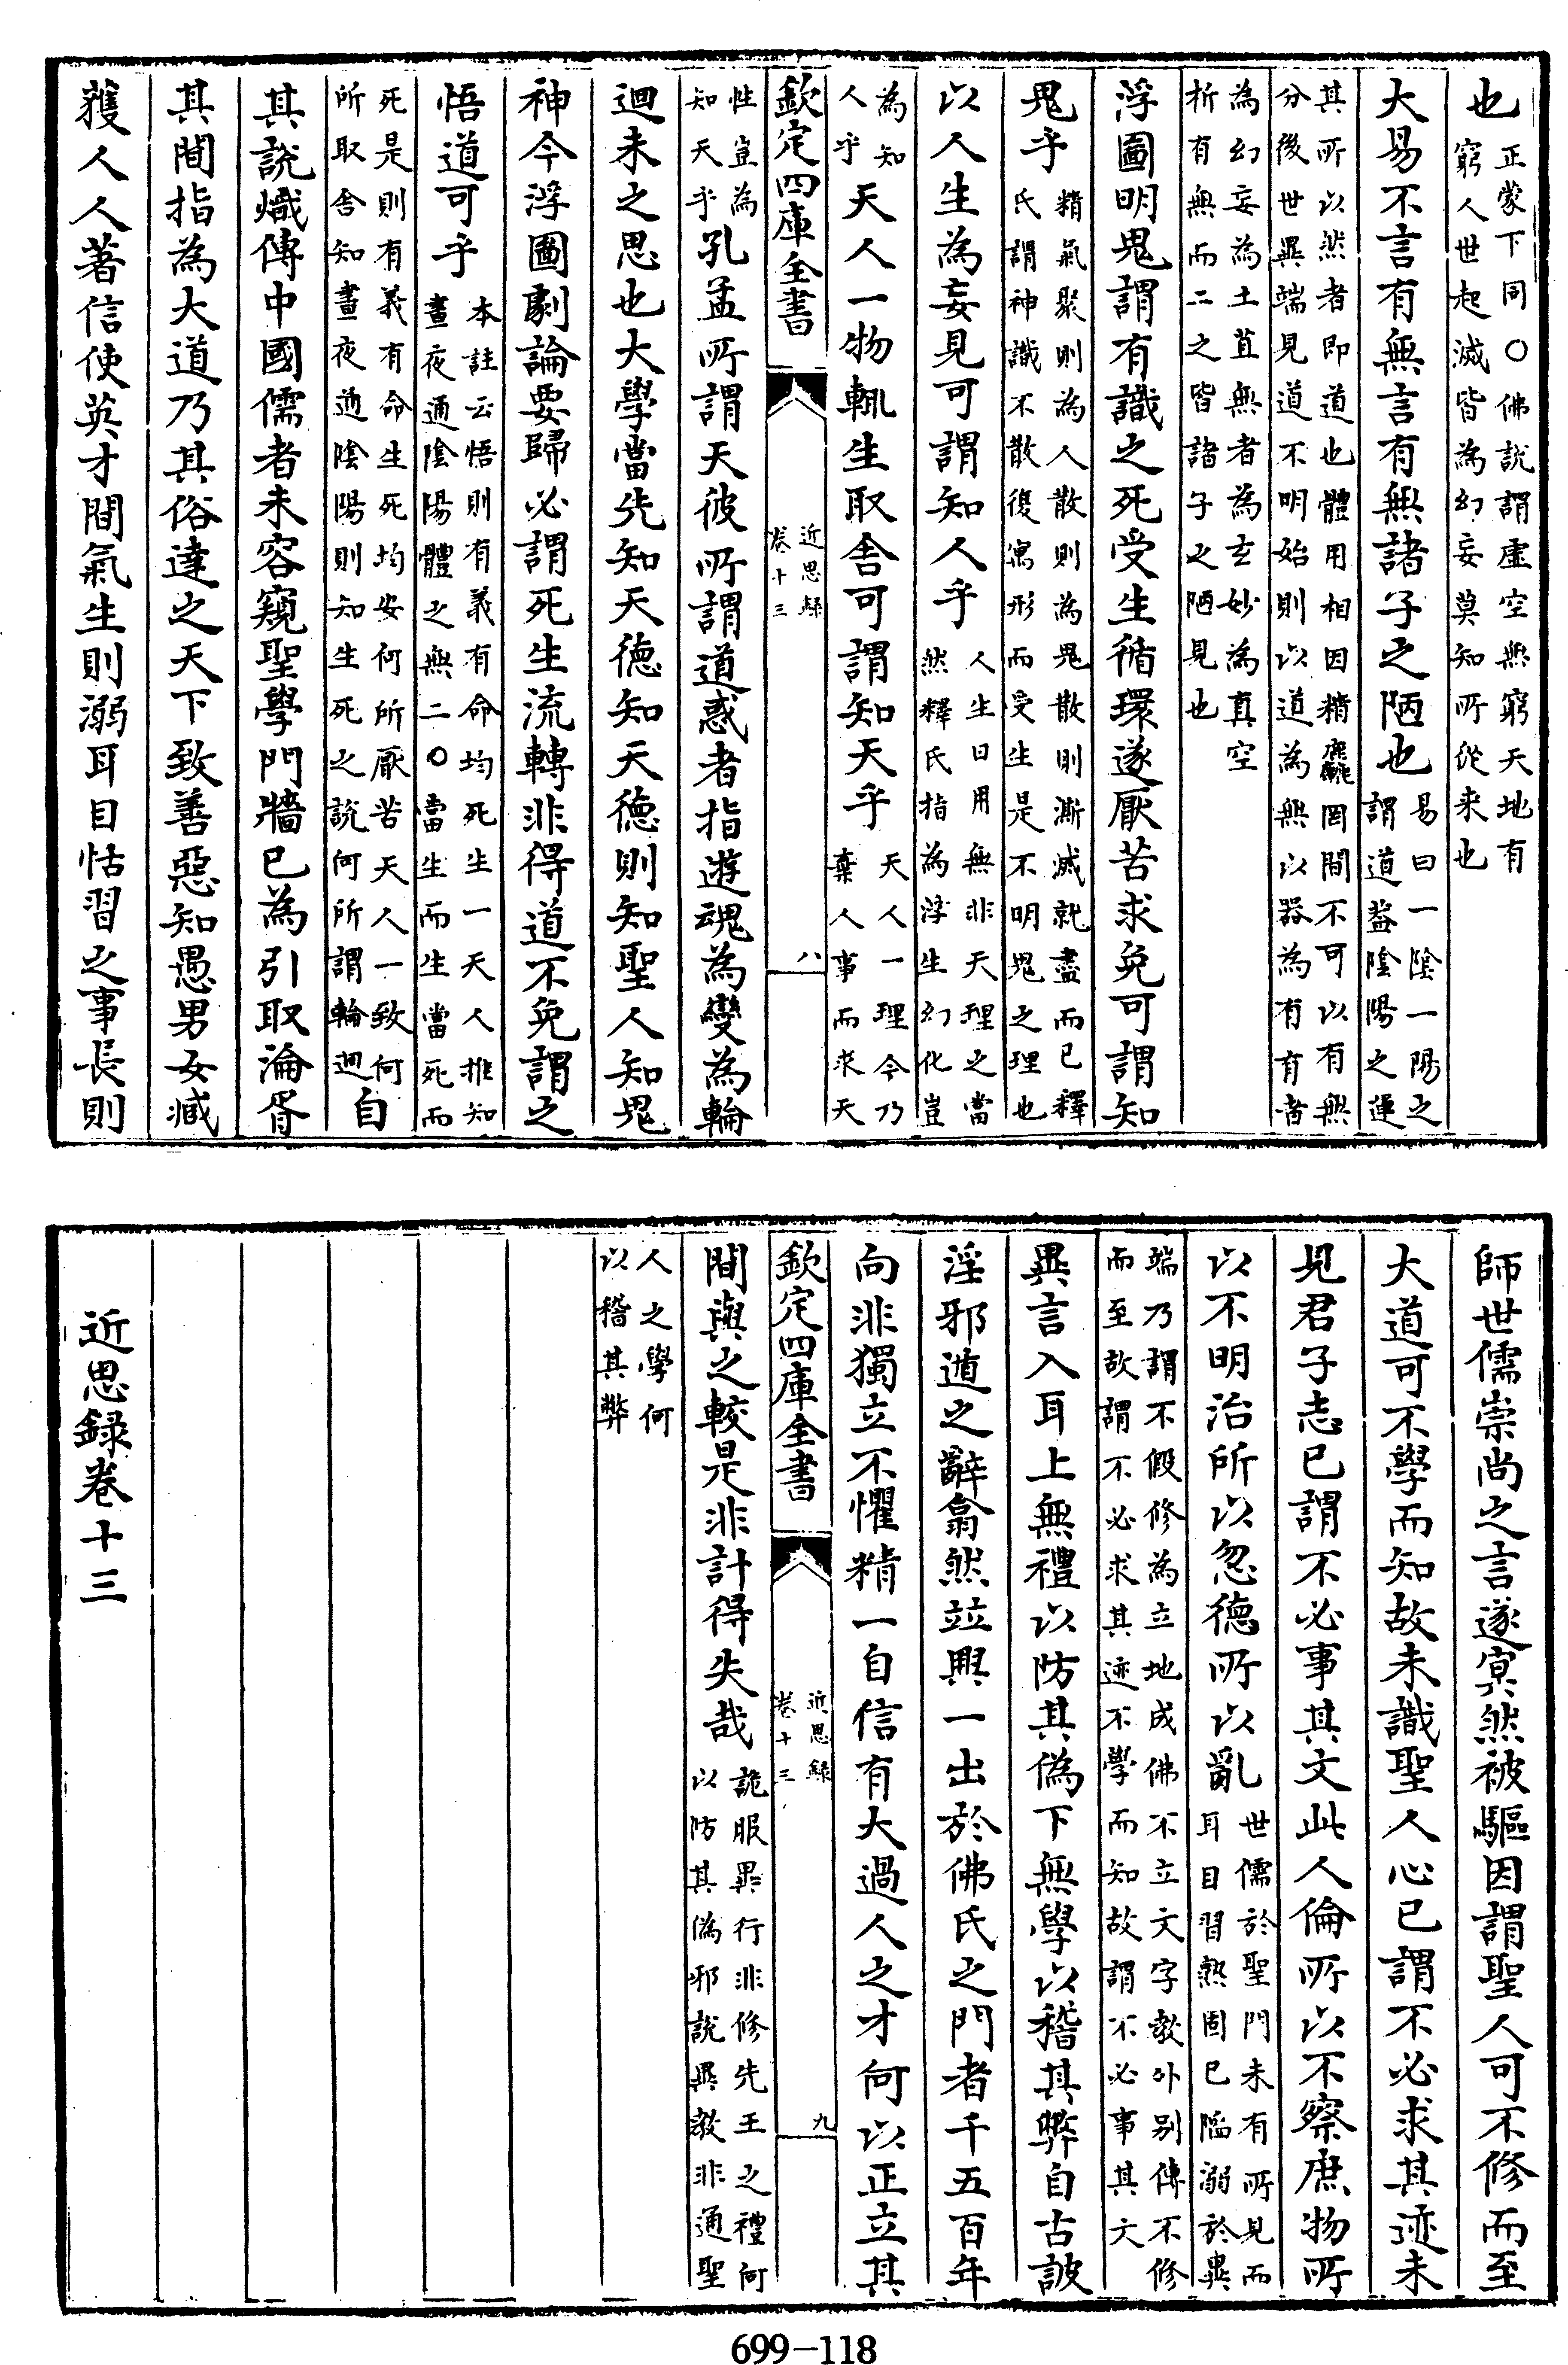 也正蒙下同○佛説謂虛空無窮天地有窮人世起滅皆為幻妄莫知所從来也
大易不言有無言有無諸子之陋也易曰一陰一陽之謂道葢陰陽之運
其所以然者即道也體用相因精麤罔間不可以有無分後世異端見道不明始則以道為無以器為有有者
為幻妄為土苴無者為玄妙為真空析有無而二之皆諸子之陋見也
浮圖明鬼謂有識之死受生循環遂厭苦求免可謂知
鬼乎精氣聚則為人散則為鬼散則漸滅就盡而已釋氏謂神識不散復寓形而受生是不明鬼之理也
以人生為妄見可謂知人乎人生日用無非天理之當然釋氏指為浮生幻化豈
為知人乎天人一物輒生取舍可謂知天乎天人一理今乃棄人事而求天
欽定四庫全書 近思録卷十三 八
性豈為知天乎孔孟所謂天彼所謂道惑者指遊魂為變為輪
迴未之思也大學當先知天德知天德則知聖人知鬼
神今浮圖劇論要歸必謂死生流轉非得道不免謂之
悟道可乎本註云悟則有義有命均死生一天人推知晝夜通陰陽體之無二○當生而生當死而
死是則有義有命生死均安何所厭苦天人一致何所取舎知晝夜通陰陽則知生死之說何所謂輪迴自
其説熾傳中國儒者未容窺聖學門牆已為引取淪胥
其間指為大道乃其俗達之天下致善惡知愚男女臧
獲人人著信使英才間氣生則溺耳目恬習之事長則
師世儒崇尚之言遂冥然被驅因謂聖人可不修而至
大道可不學而知故未識聖人心已謂不必求其迹未
見君子志已謂不必事其文此人倫所以不察庶物所
以不明治所以忽德所以亂世儒於聖門未有所見而耳目習熟固已陷溺於異
端乃謂不假修為立地成佛不立文字教外別傳不修而至故謂不必求其迹不學而知故謂不必事其文
異言入耳上無禮以防其偽下無學以稽其弊自古詖
淫邪遁之辭翕然竝興一出於佛氏之門者千五百年
向非獨立不懼精一自信有大過人之才何以正立其
欽定四庫全書 近思録卷十三 九
間與之較是非計得失哉詭服異行非修先王之禮何以防其偽邪說異教非通聖
人之學何以稽其弊
近思録卷十三
699-118